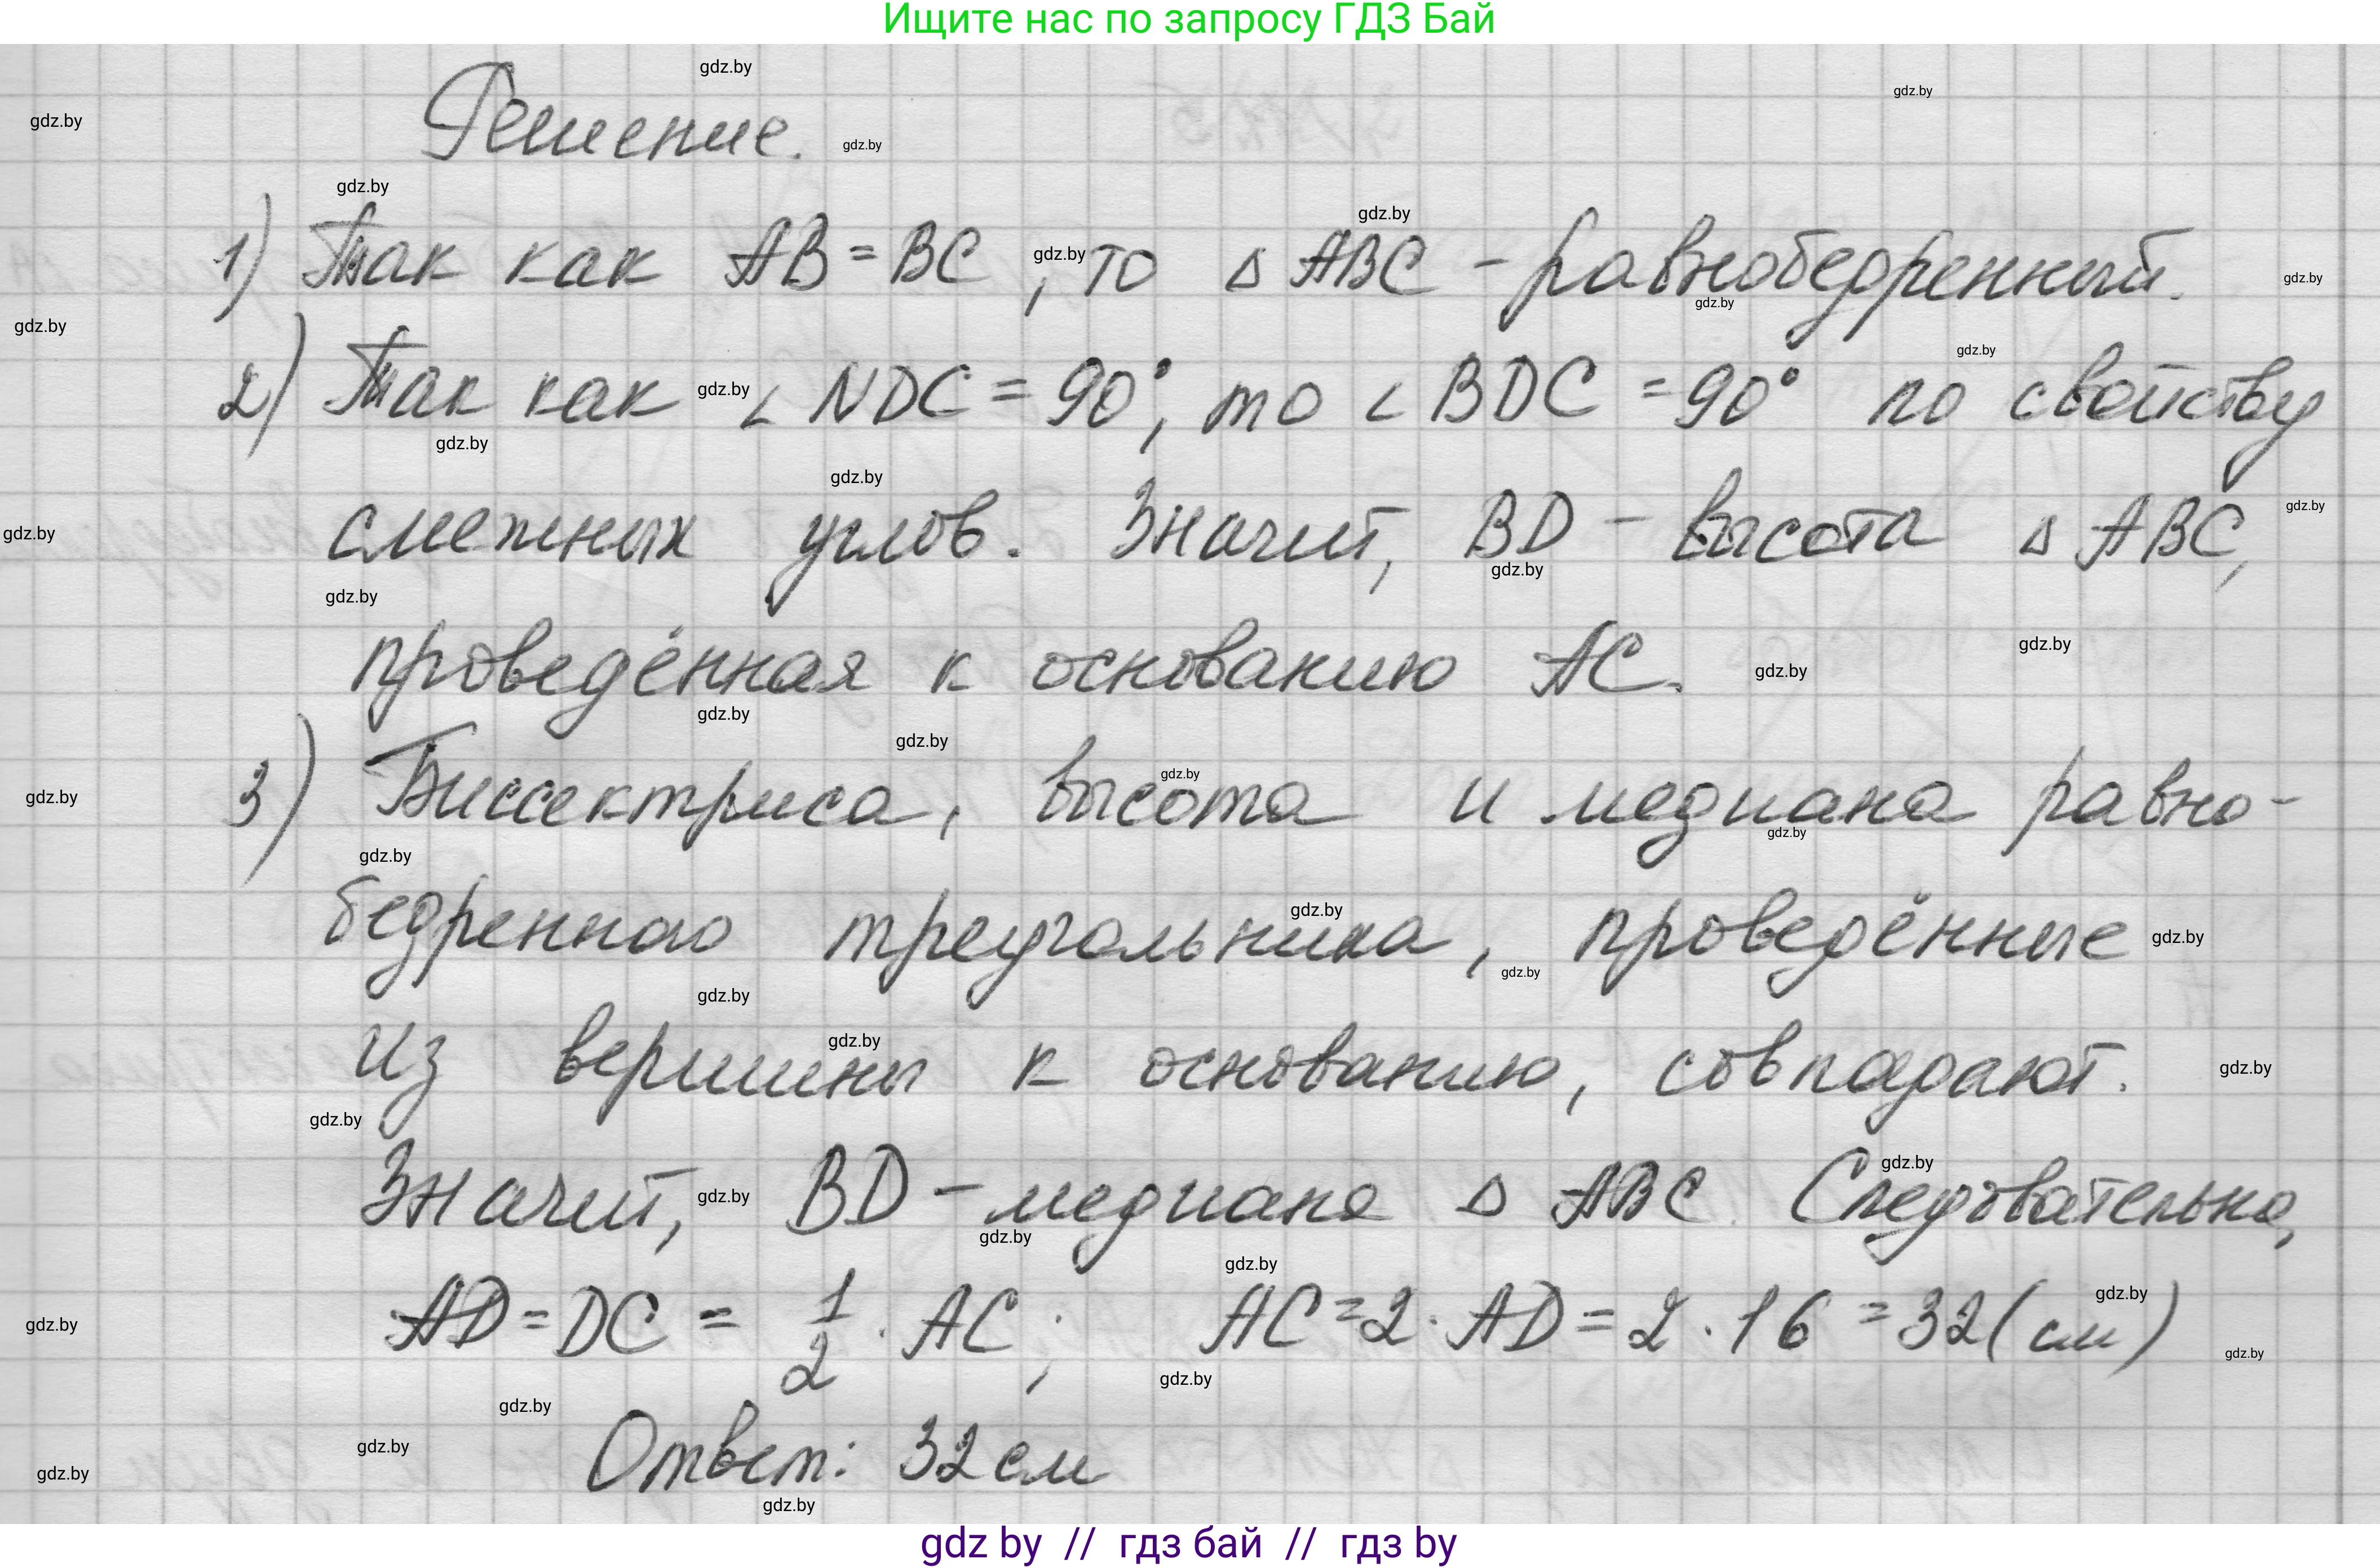 Ищите нас по запросу ГДЗ Бай
gdz.by
gdz.by
gdz.by
Решение.
gdz.by
gdz.by
gdz.by
1) Так как AB = BC, то △ ABC - равнобедренный.
gdz.by
gdz.by
gdz.by
gdz.by
gdz.by
2) Так как ∠ NDC = 90°, то ∠ BDC = 90° по свойству
gdz.by
gdz.by
gdz.by
gdz.by
смежных углов. Значит, BD - высота △ ABC,
gdz.by
gdz.by
gdz.by
gdz.by
проведённая к основанию AC.
gdz.by
gdz.by
gdz.by
gdz.by
3) Биссектриса, высота и медиана равно-
gdz.by
gdz.by
gdz.by
gdz.by
бедренного треугольника, проведённые
gdz.by
gdz.by
gdz.by
gdz.by
из вершины к основанию, совпадают.
gdz.by
gdz.by
gdz.by
Значит, BD - медиана △ ABC. Следовательно,
gdz.by
gdz.by
gdz.by
gdz.by
AD = DC = 1/2 · AC; AC = 2 · AD = 2 · 16 = 32 (см)
gdz.by
gdz.by
gdz.by
gdz.by
gdz.by
Ответ: 32 см
gdz.by
gdz.by
gdz.by
gdz by // гдз бай // гдз by